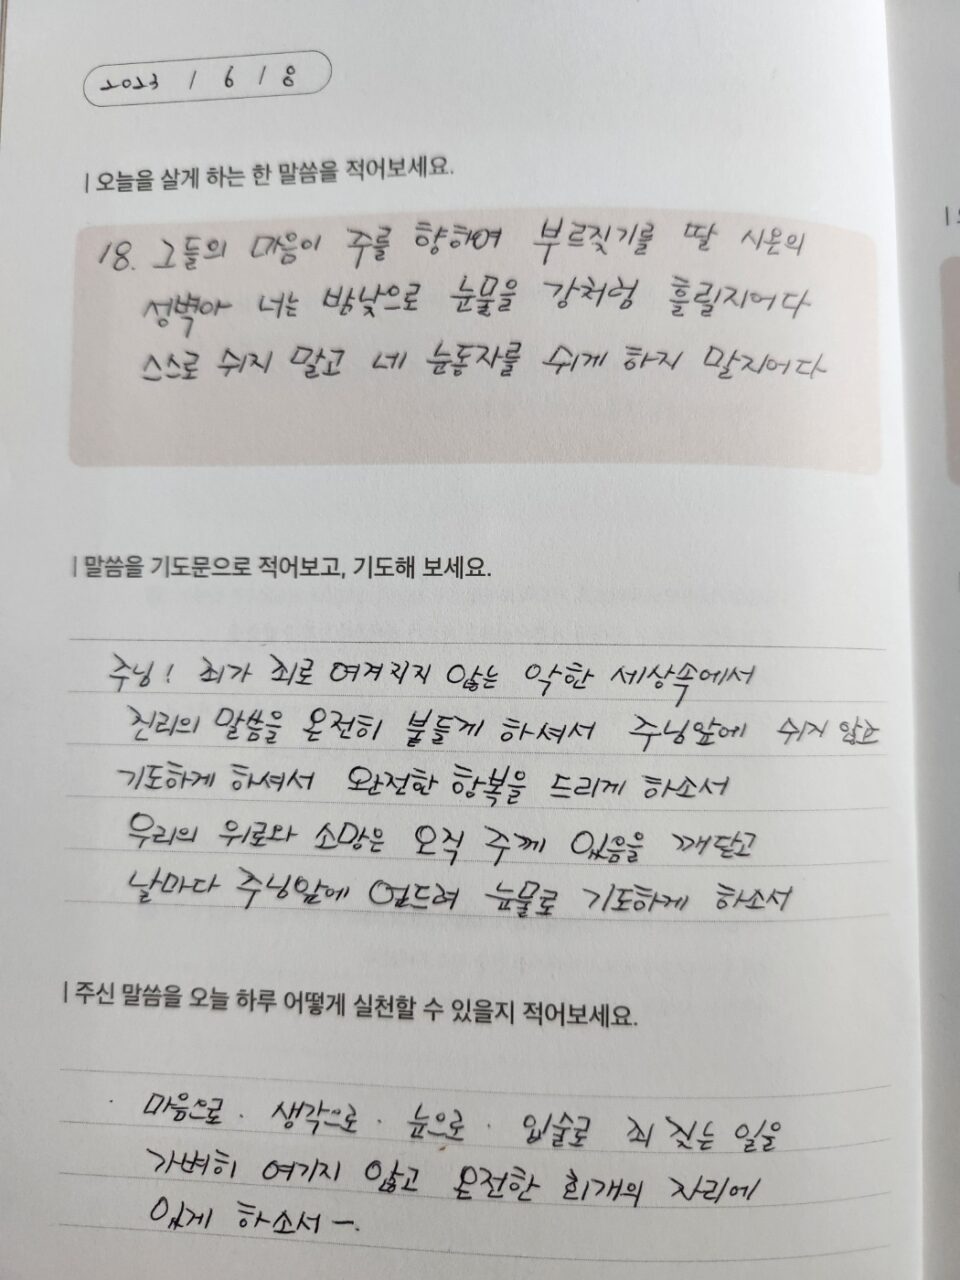 2023 / 6 / 8
| 오늘을 살게 하는 한 말씀을 적어보세요.
18. 그들의 마음이 주를 향하여 부르짖기를 딸 시온의
성벽아 너는 밤낮으로 눈물을 강처럼 흘릴지어다
스스로 쉬지 말고 네 눈동자를 쉬게 하지 말지어다
| 말씀을 기도문으로 적어보고, 기도해 보세요.
주님! 죄가 죄로 여겨지지 않는 악한 세상속에서
진리의 말씀을 온전히 붙들게 하셔서 주님앞에 쉬지 않고
기도하게 하셔서 완전한 항복을 드리게 하소서
우리의 위로와 소망은 오직 주께 있음을 깨닫고
날마다 주님앞에 엎드려 눈물로 기도하게 하소서
| 주신 말씀을 오늘 하루 어떻게 실천할 수 있을지 적어보세요.
· 마음으로 · 생각으로 · 눈으로 · 입술로 죄 짓는 일을
가벼히 여기지 않고 온전한 회개의 자리에
있게 하소서 ー.